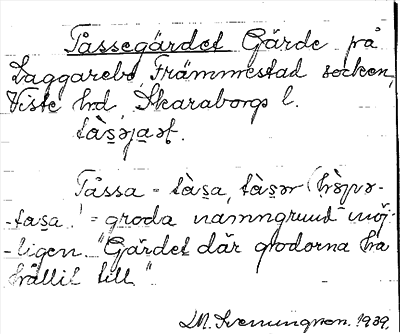 Tåssegärdet Gärde på
Laggarebo, Främmestad socken,
Viste hd, Skaraborgs l.
tàsəja̤ət.
Tåssa = tàsa, tàsər
-tasa! = groda namngrund möj-
-ligen. "Gärdet där grodorna ha
hållit till"
D.M. Svenungson. 1939.